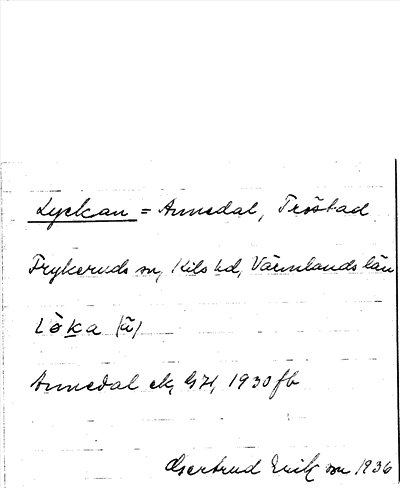 Lyckan = Annedal, Tröstad
Frykeruds sn, Kils hd, Värmlands län
Lò̀ka (ù)
Annedal ek, GK, 1930 fb
Gertrud Eriksson 1936